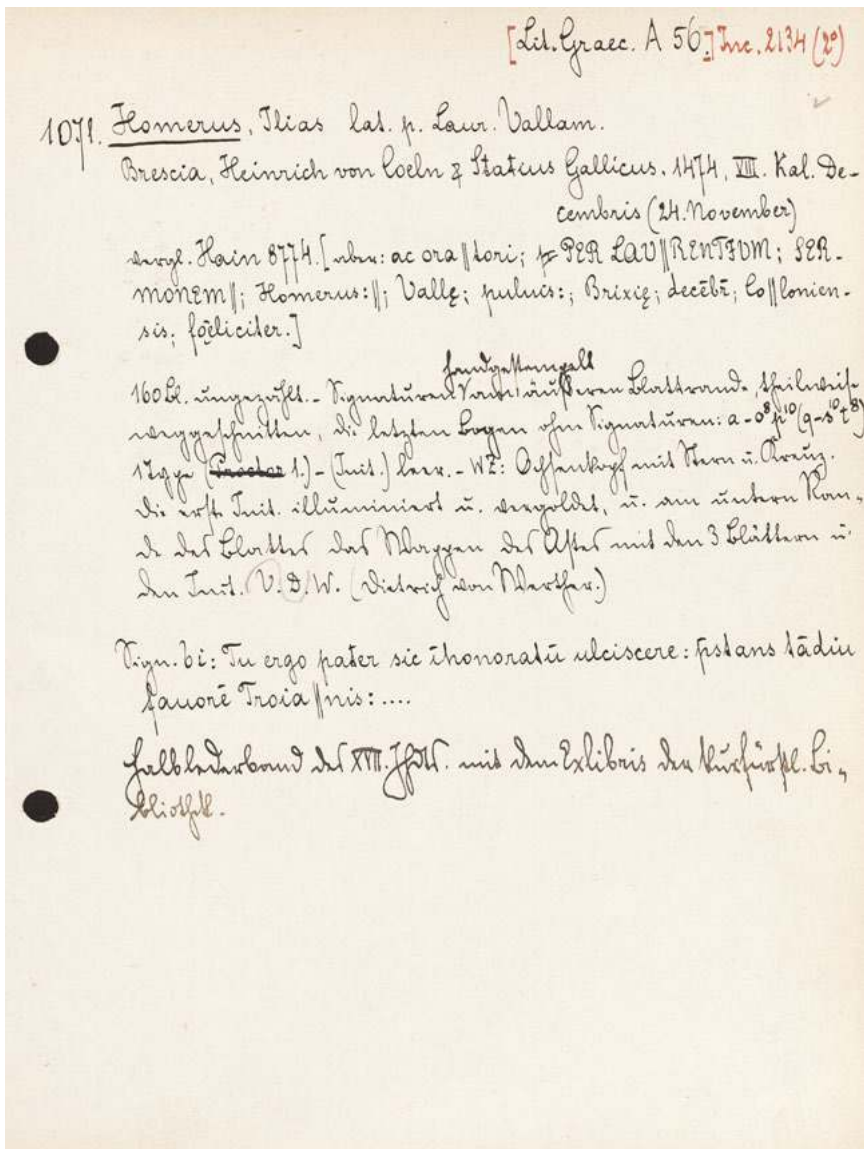 [Lit. Graec. A 56.] Inc. 2134 (2°)
1071. Homerus, Ilias lat. p. Laur. Vallam.
Brescia, Heinrich von Coeln & Statius Gallicus. 1474, VIII. Kal. De-
cembris (24. November)
vergl. Hain 8774. [aber: ac ora||tori; PER LAU||RENTIUM; SER-
MONEM||; Homerus:||; Vallę; puluis:; Brixię; decēbr̄; Co||lonien-
sis; fœliciter.]
handgestempelt
160 Bl. ungezählt. – Signaturen am äußeren Blattrande, theilweise
weggeschnitten, die letzten Bogen ohne Signaturen: a–o⁸ p¹⁰ (q–s¹⁰ t⁸)
1 Type (Proctor 1.) – (Init.) leer. – WZ: Ochsenkopf mit Stern u. Kreuz.
Die erste Init. illuminiert u. vergoldet, u. am untern Ran-
de des Blattes das Wappen des Astes mit den 3 Blättern u.
den Init. V. D. W. (Dietrich von Werther.)
Sign. bi: Tu ergo pater sic īhonoratū ulciscere: p̄stans tādiu
fauorē Troia||nis: ....
Halblederband des XVII. Jhdts. mit dem Exlibris der kurfürstl. Bi-
bliothek.